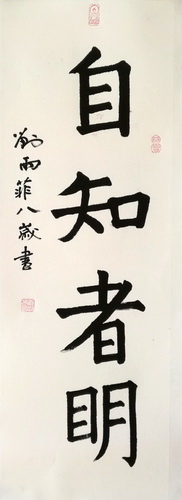 自知者明
雨菲八歲書